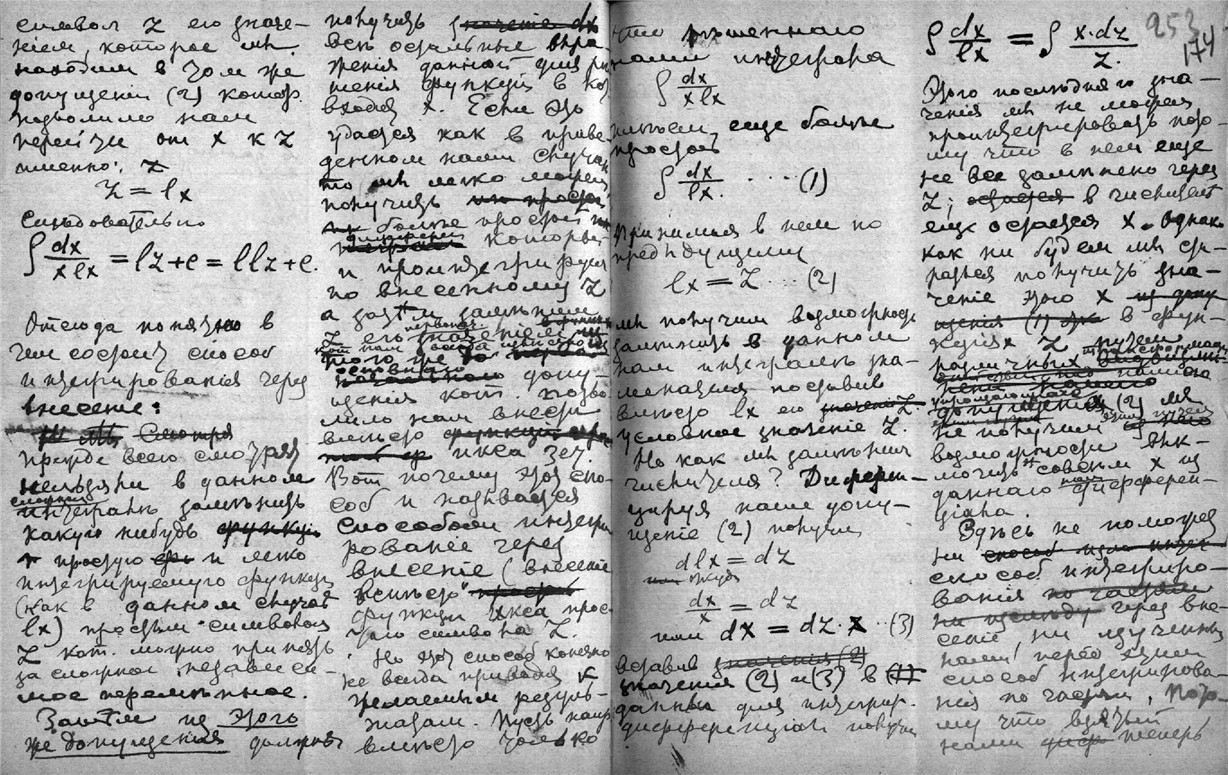 символ Z его значе-
нiем, которое мы
находим в том же
допущенiи (2) котор.
позволило нам
перейти от x к Z
именно: Z
Z = lx
Следовательно
∫ dx/x lx = lz + c = llz + c.
Отсюда понятно в
чем состоит способ
интегрированiя через
внесенiе:
Смотря
прежде всего смотрят
нельзя ли в данном
сложный
интеграл заменить
какую нибудь функцiю
простую и легко
интегрируемую функцiю
(как в данном случае
lx) простым символом
Z кот. можно принять
за сложное независи-
мое переменное.
Затем из этого
же допущенiя должны
получить значенiе dx
все остальные выра-
женiя данной для
функцiи в
входя x. Если это
удается как в приве-
денном нами случае
то мы легко можем
получить
более простой
который
и проинтегрируем
по внесенному Z
а затем заменим
Z его значенiем
того же
основного
начального допу-
щенiя кот. позво-
лило нам внести
вместо функцiи
икса зет
Вот почему этот спо-
соб и называется
способом интегри
рованiе через
внесенiе (внесенiе
вместо
функцiи икса прос-
того символа Z.
Но этот способ конечно
не всегда приводит к
желаемым резуль-
татам. Пусть напр
вместо только
что решенного
нами интеграла
∫ dx/x lx
возьмем, еще более
простой
∫ dx/lx. .... (1)
Принимая в нем по
предыдущему
lx = Z ... (2)
мы получим возможность
заменить в данном
нам интеграле зна-
менателя поставив
вместо lx его значенiе Z.
условное значенiе Z.
Но как мы заменим
числителя? Диферен-
цируя наше допу-
щенiе (2) получим
dlx = dz
откуда
dx/x = dz
или dx = dz·x ..(3)
вставив значенiя (2)
значенiя (2) и (3) в (1)
данный для интегрир.
дифференцiал получим
253
174
∫ dx/lx = ∫ x·dz/z.
Этого последняго зна-
ченiя мы не можем
проинтегрировать пото-
му что в нем еще
не все заменено через
Z; остается в числителе
еще остается x. Однако
как ни будем мы ста-
раться получить зна-
ченiе этого x из допу
щенiя (1) в функ-
цiях Z путем
различных
нашего
допущенiя (2) мы
не получим
возможности вык-
лючить совсем x из
даннаго нам дифферен-
цiала.
Здесь не поможет
ни способ
способ интегриро-
ванiя по частям
ни через вне-
сенiе ни изученный
нами перед этим
способ интегрирова-
нiя по частям, пото-
му что взятый
нами теперь